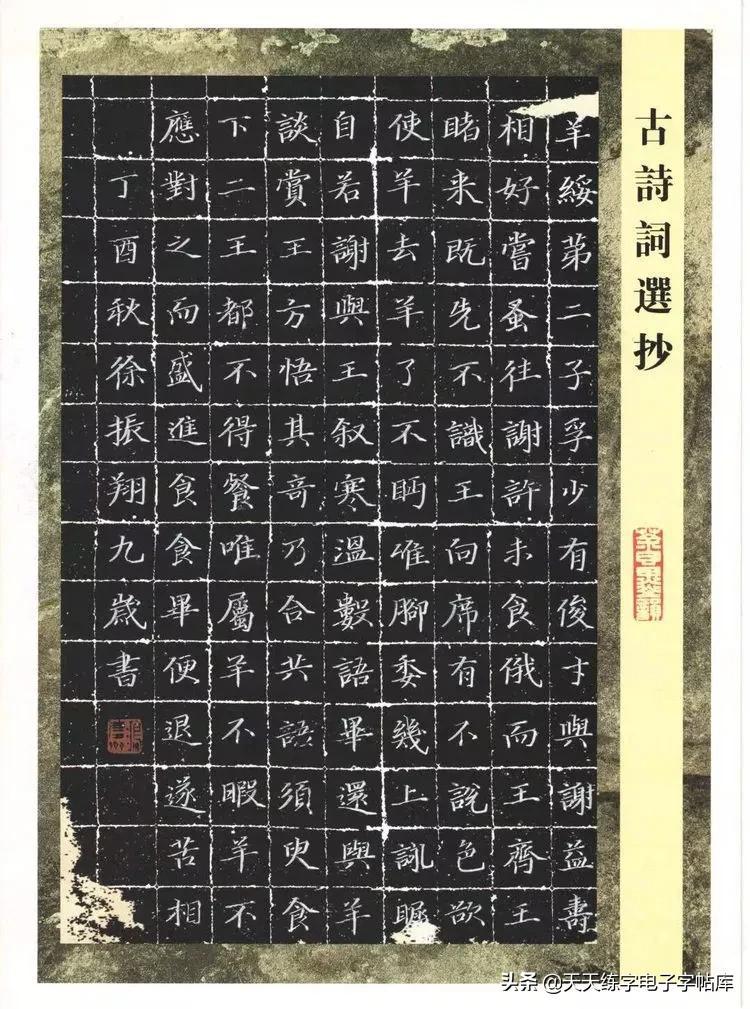 古詩詞選抄
羊綏第二子孚少有俊才與謝益壽
相好嘗蚤往謝許未食俄而王齊王
睹来既先不識王向席有不說色欲
使羊去羊了不眄唯腳委幾上詠矚
自若謝與王叙寒溫數語畢還與羊
談賞王方悟其竒乃合共語須臾食
下二王都不得餐唯屬羊不暇羊不
應對之而盛進食食畢便退遂苦相
丁酉秋徐振翔九歲書
头条 @天天练字电子字帖库